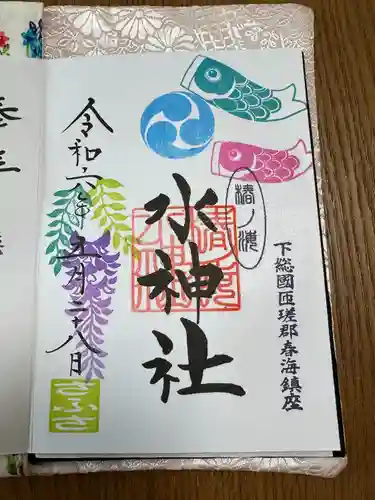 下総國匝瑳郡春海鎮座
椿ノ海
水神社
令和六年五月二十八日
さふさ